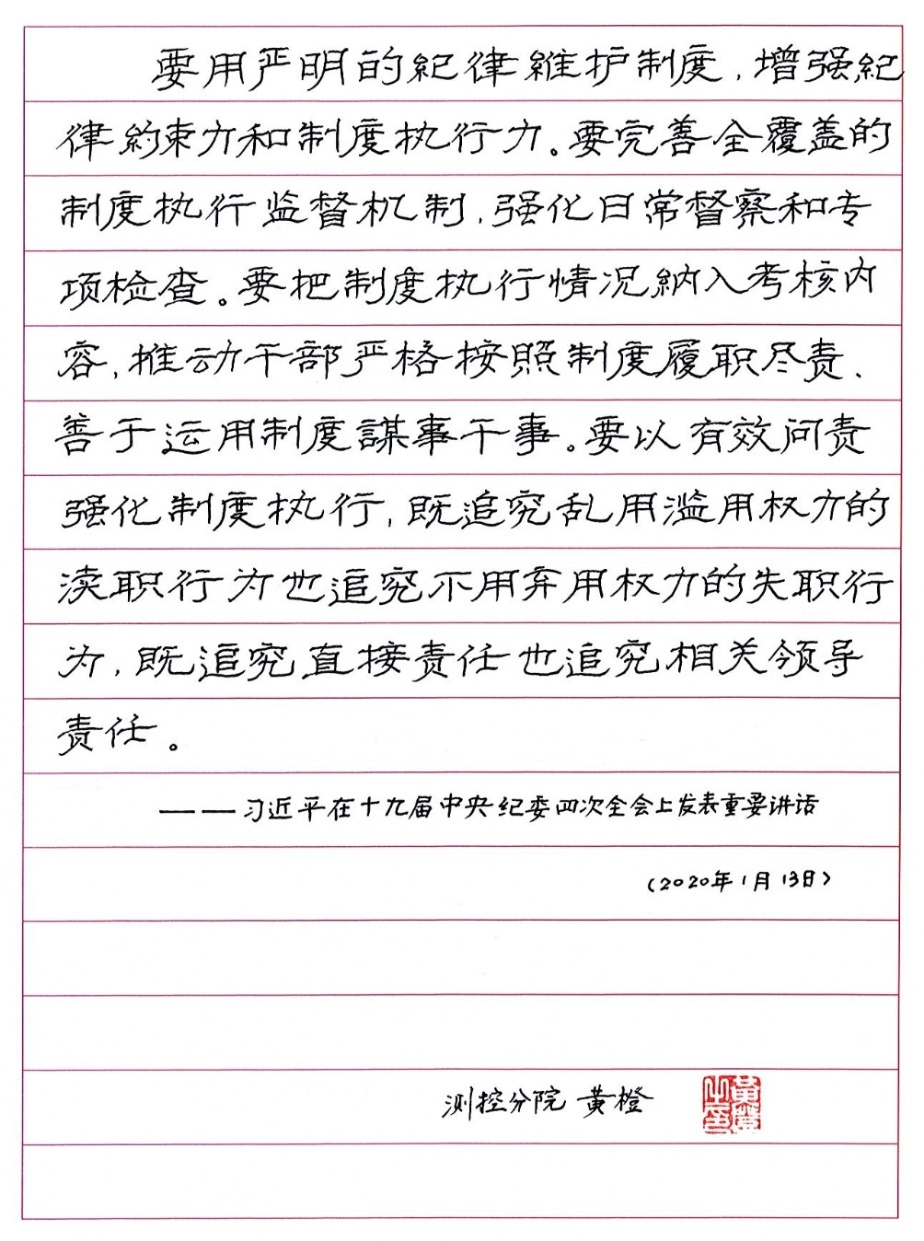 要用严明的紀律維护制度，增强紀
律約束力和制度执行力。要完善全覆盖的
制度执行监督机制，强化日常督察和专
项检查。要把制度执行情况納入考核内
容，推动干部严格按照制度履职尽责、
善于运用制度謀事干事。要以有效问责
强化制度执行，既追究乱用滥用权力的
渎职行为也追究不用弃用权力的失职行
为，既追究直接责任也追究相关领导
责任。
——习近平在十九届中央纪委四次全会上发表重要讲话
(2020年1月13日)
测控分院 黄橙
黃橙之印